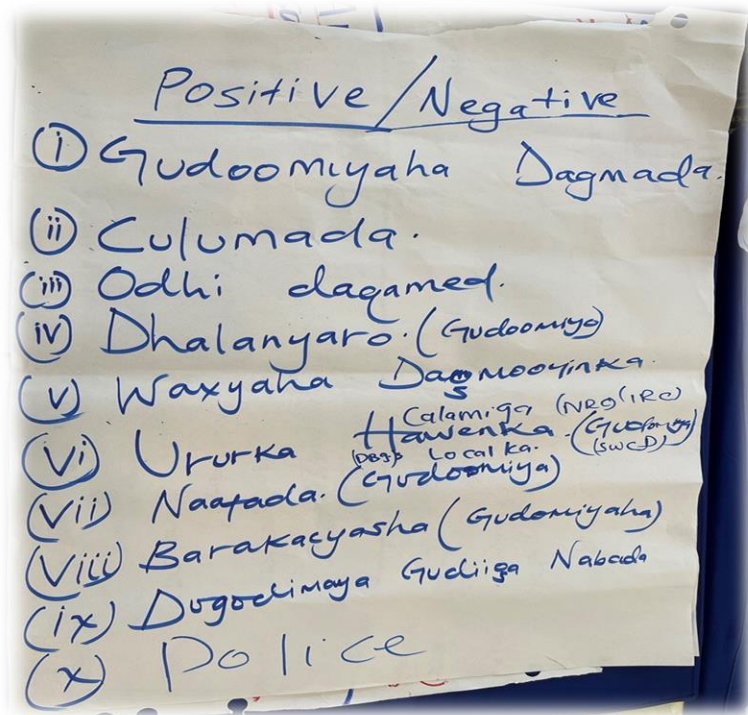 Positive/Negative
(i) Gudoomiyaha Dagmada.
(ii) Culumada.
(iii) Odhi daqamed.
(iv) Dhalanyaro. (Gudoomiyo)
(v) Waxyaha Dagmooyinka.
Calamiga (NRC/IRC)
(vi) Ururka Hawenka. (Gudomiya)
Local ka. (SWCD)
(vii) Naafada. (Gudoomiya)
(viii) Barakacyasha (Gudomiyaha)
(ix) Dugodimaya Gudiiga Nabada
(x) Police